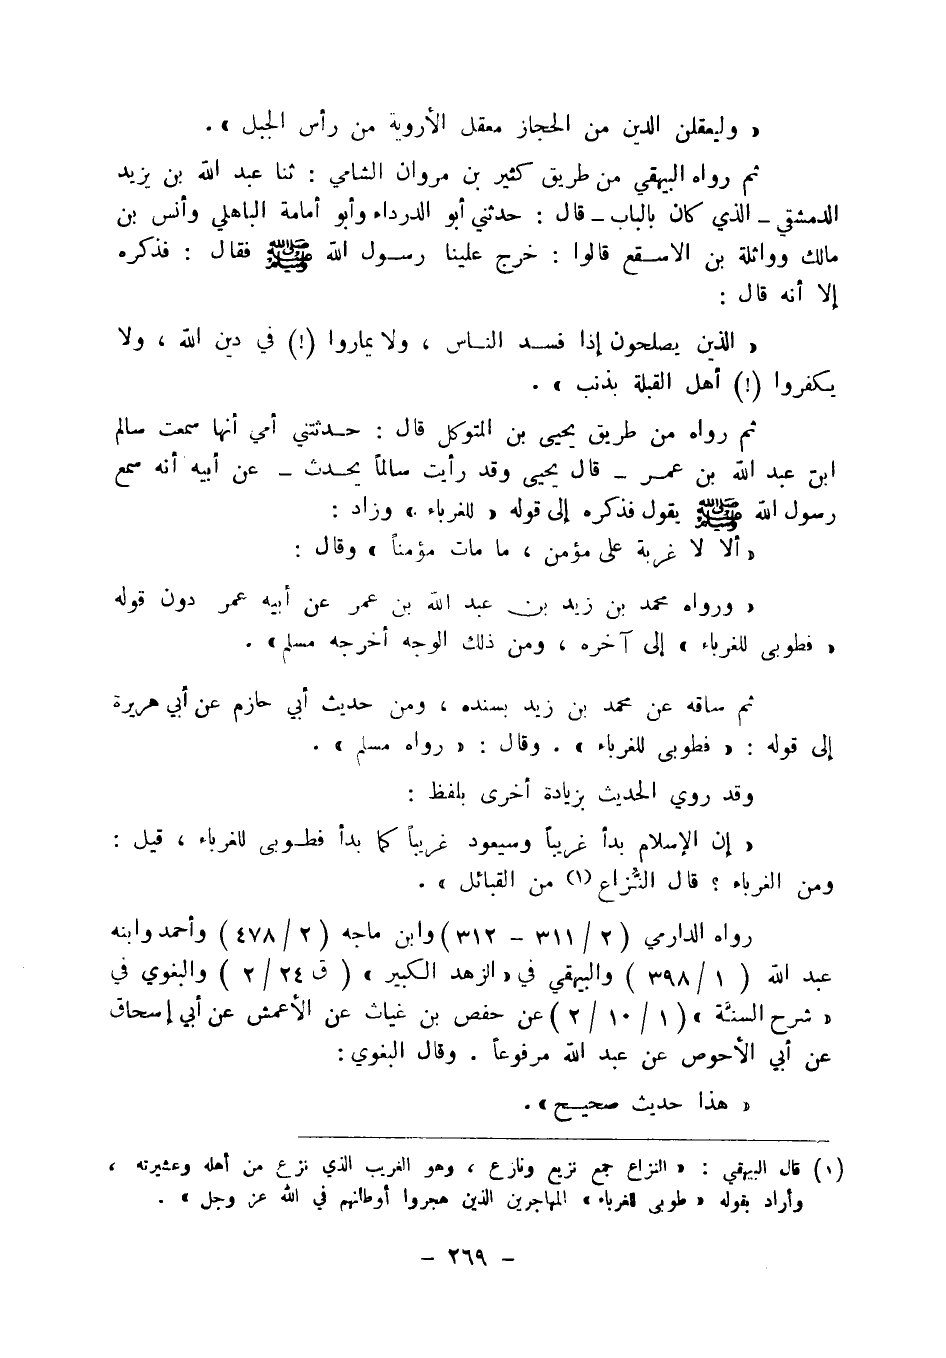 « وليعقلن الدين من الحجاز معقل الأروية من رأس الجبل » .
ثم رواه البيهقي من طريق كثير بن مروان الشامي : ثنا عبد الله بن يزيد
الدمشقي ــ الذي كان بالباب ــ قال : حدثني أبو الدرداء وأبو أمامة الباهلي وأنس بن
مالك وواثلة بن الاسقع قالوا : خرج علينا رسول الله ﷺ فقال : فذكره
إلا أنه قال :
« الذين يصلحون إذا فسد الناس ، ولا يماروا (!) في دين الله ، ولا
يكفروا (!) أهل القبلة بذنب » .
ثم رواه من طريق يحيى بن المتوكل قال : حدثتني أمي أنها سمعت سالم
ابن عبد الله بن عمر ــ قال يحيى وقد رأيت سالماً يحدث ــ عن أبيه أنه سمع
رسول الله ﷺ يقول فذكره إلى قوله « للغرباء » وزاد :
« ألا لا غربة على مؤمن ، ما مات مؤمناً » وقال :
« ورواه محمد بن زيد بن عبد الله بن عمر عن أبيه عمر دون قوله
« فطوبى للغرباء » إلى آخره ، ومن ذلك الوجه أخرجه مسلم » .
ثم ساقه عن محمد بن زيد بسنده ، ومن حديث أبي حازم عن أبي هريرة
إلى قوله : « فطوبى للغرباء » . وقال : « رواه مسلم » .
وقد روي الحديث بزيادة أخرى بلفظ :
« إن الإسلام بدأ غريباً وسيعود غريباً كما بدأ فطوبى للغرباء ، قيل :
ومن الغرباء ؟ قال النُّزاع (١) من القبائل » .
رواه الدارمي ( ٢ / ٣١١ – ٣١٢ ) وابن ماجه ( ٢ / ٤٧٨ ) وأحمد وابنه
عبد الله ( ١ / ٣٩٨ ) والبيهقي في « الزهد الكبير » ( ق ٢٤ / ٢ ) والبغوي في
« شرح السنَّة » ( ١ / ١٠ / ٢ ) عن حفص بن غياث عن الأعمش عن أبي إسحاق
عن أبي الأحوص عن عبد الله مرفوعاً . وقال البغوي :
« هذا حديث صحيح » .
(١) قال البيهقي : « النزاع جمع نزيع ونازع ، وهو الغريب الذي نزع من أهله وعشيرته ،
وأراد بقوله « طوبى للغرباء » المهاجرين الذين هجروا أوطانهم في الله عز وجل » .
– ٢٦٩ –